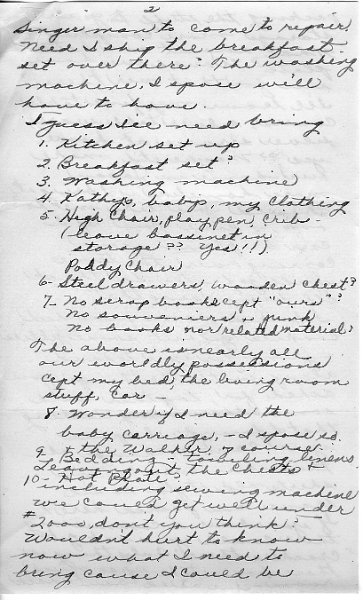 2
Singer man to come to repair!
Need I ship the breakfast
set over there? The washing
machine, I spose will
have to have.
I guess I'll need bring
1. Kitchen set up
2. Breakfast set?
3. Washing machine
4. Kathy's, baby's, my clothing
5. High Chair, play pen, Crib -
(leave bassinet in
storage?? Yes!!)
Poddy Chair
6- Steel drawers, wooden chest?
7- No scrap books cept "ours"?
No souveniers or junk
No books nor related material?
The above is nearly all
our worldly possessions
cept my bed, the living room
stuff, Car -
8. Wonder if I need the
baby carriage, - I spose so.
& the Walker, of course.
9. Bedding & towling, linens
Leaving out the Chests &
10- Hot Plate?
including sewing machine
we could get well under
#2000, don't you think?
Wouldn't hurt to know
now what I need to
bring cause I could be